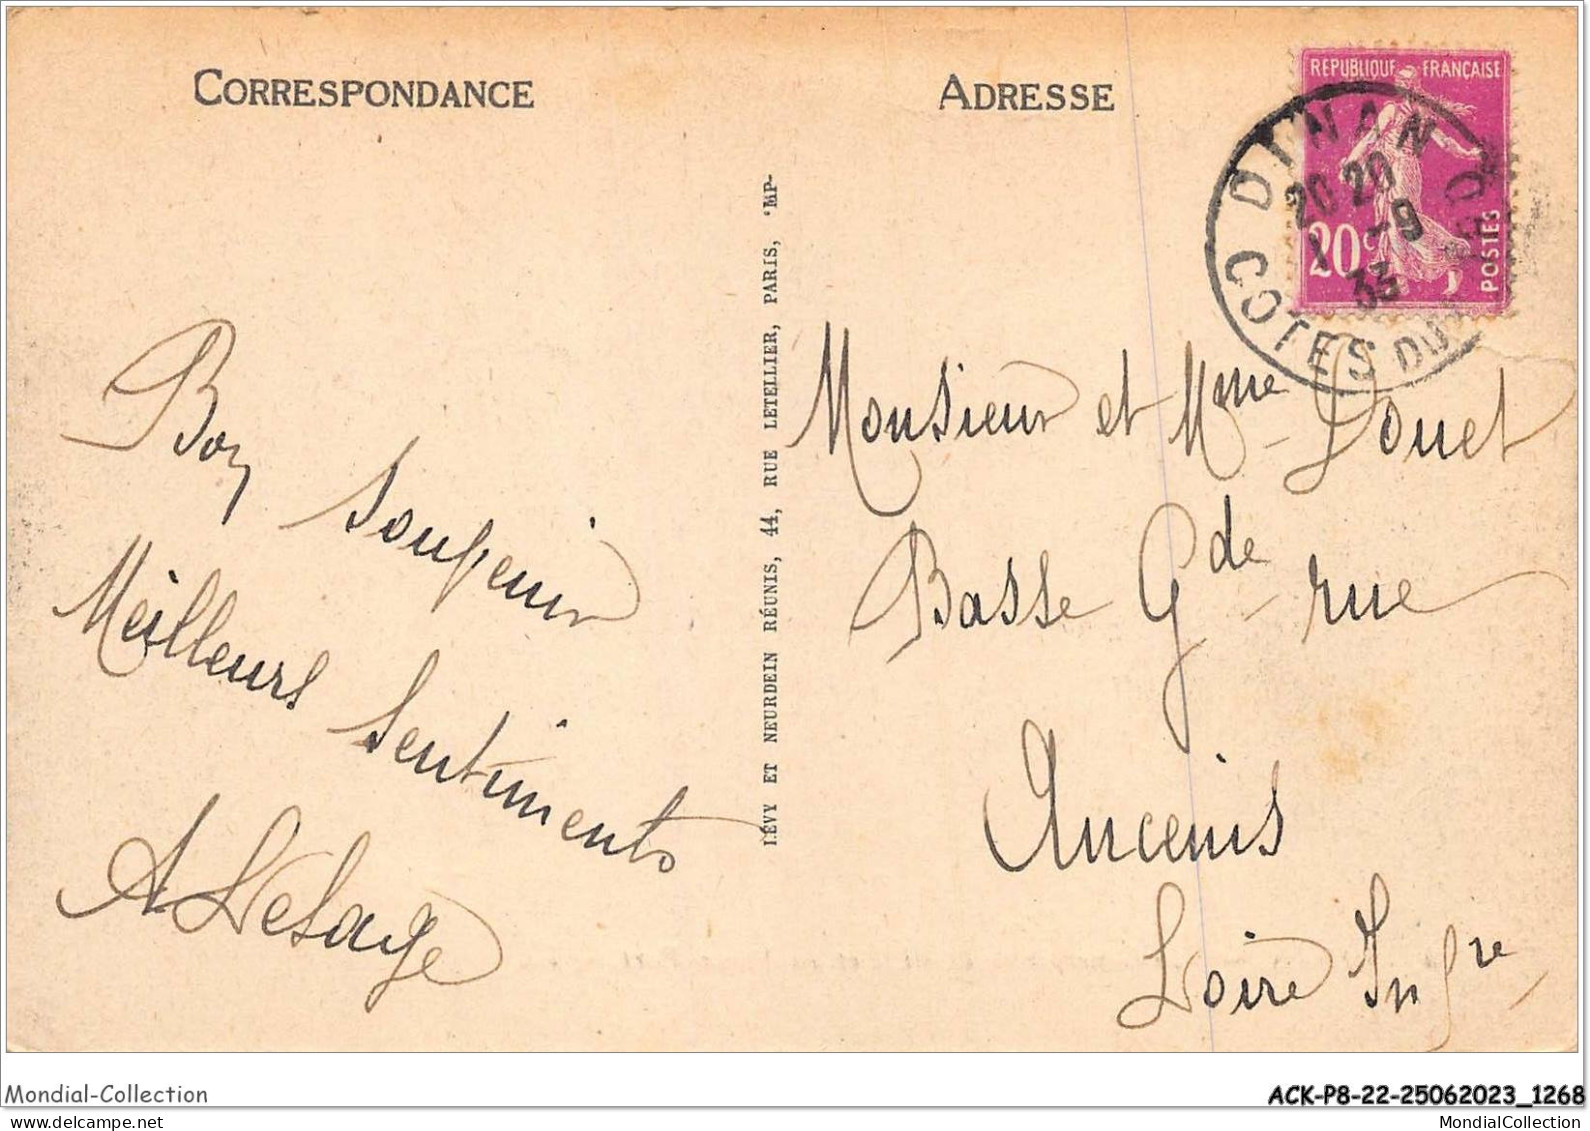 CORRESPONDANCE
ADRESSE
REPUBLIQUE FRANÇAISE
20c
POSTES
DINAN
20 20
1 -9
33
COTES DU NORD
Bon souvenir
Meilleurs Sentiments
A Lesage
LÉVY ET NEURDEIN RÉUNIS, 44, RUE LETELLIER, PARIS, IMP-
Monsieur et Mme Douet
Basse Gde rue
Ancenis
Loire Infre
Mondial-Collection
ACK-P8-22-25062023_1268
delcampe.net
MondialCollection